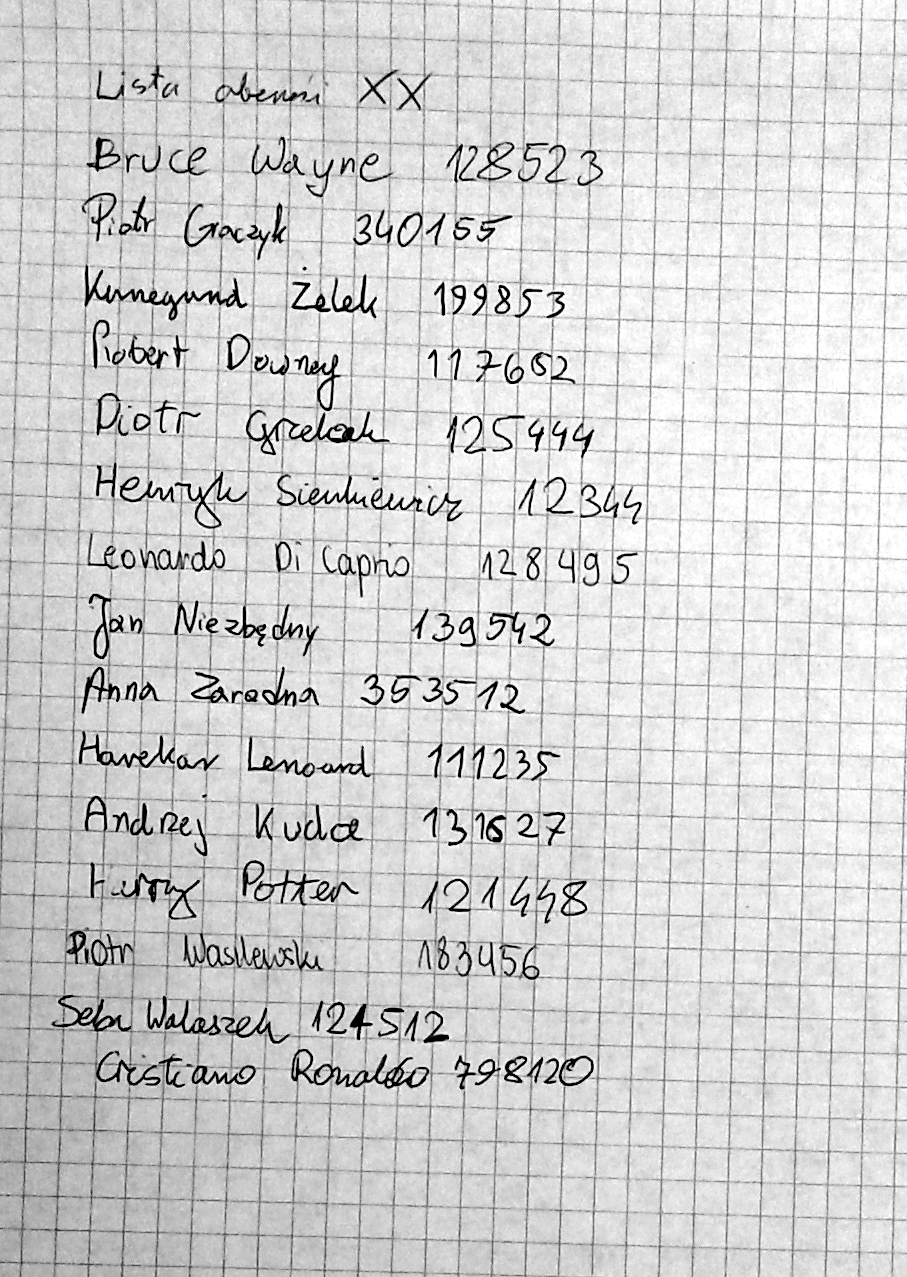 Lista obecności XX
Bruce Wayne 128523
Piotr Graczyk 340155
Kunegund Żelek 199853
Robert Downey 117652
Piotr Grzelak 125444
Henryk Sienkiewicz 12344
Leonardo Di Caprio 128495
Jan Niezbędny 139542
Anna Zaradna 353512
Havekar Lenoard 111235
Andrzej Kudła 131627
Harry Potter 121448
Piotr Wasilewski 183456
Seba Walaszek 124512
Cristiano Ronaldo 798120